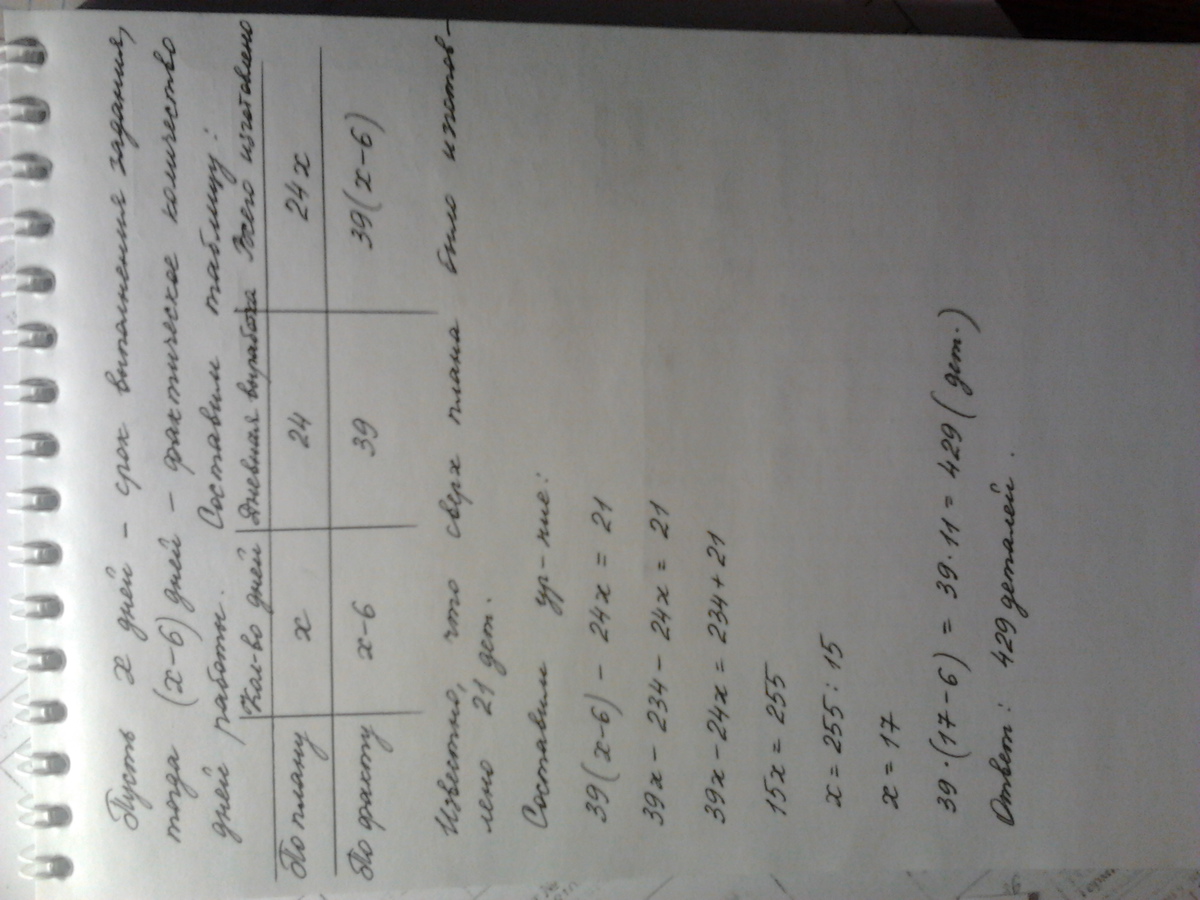 Пусть x дней – срок выполнения задания,
тогда (x-6) дней – фактическое количество
дней работы. Составим таблицу:
Кол-во дней Дневная выработка Всего изготовлено
По плану x 24 24x
По факту x-6 39 39(x-6)
Известно, что сверх плана было изготов-
лено 21 дет.
Составим ур-ние:
39(x-6) - 24x = 21
39x - 234 - 24x = 21
39x - 24x = 234 + 21
15x = 255
x = 255 : 15
x = 17
39·(17-6) = 39·11 = 429 (дет.)
Ответ: 429 деталей.